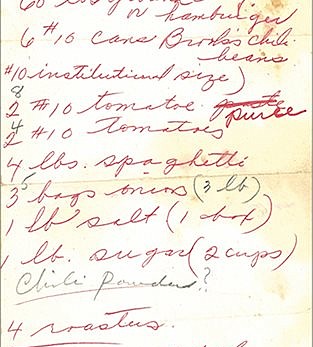 60 lbs
or hamburger
6 #10 cans Brooks chili
beans
#10 institutional size)
8
2 #10 tomatoe paste puree
4
2 #10 tomatoes
4 lbs. spaghetti
5
3 bags onions (3 lb)
1 lb salt (1 box)
1 lb. sugar (2 cups)
Chili Powder?
4 roasters.